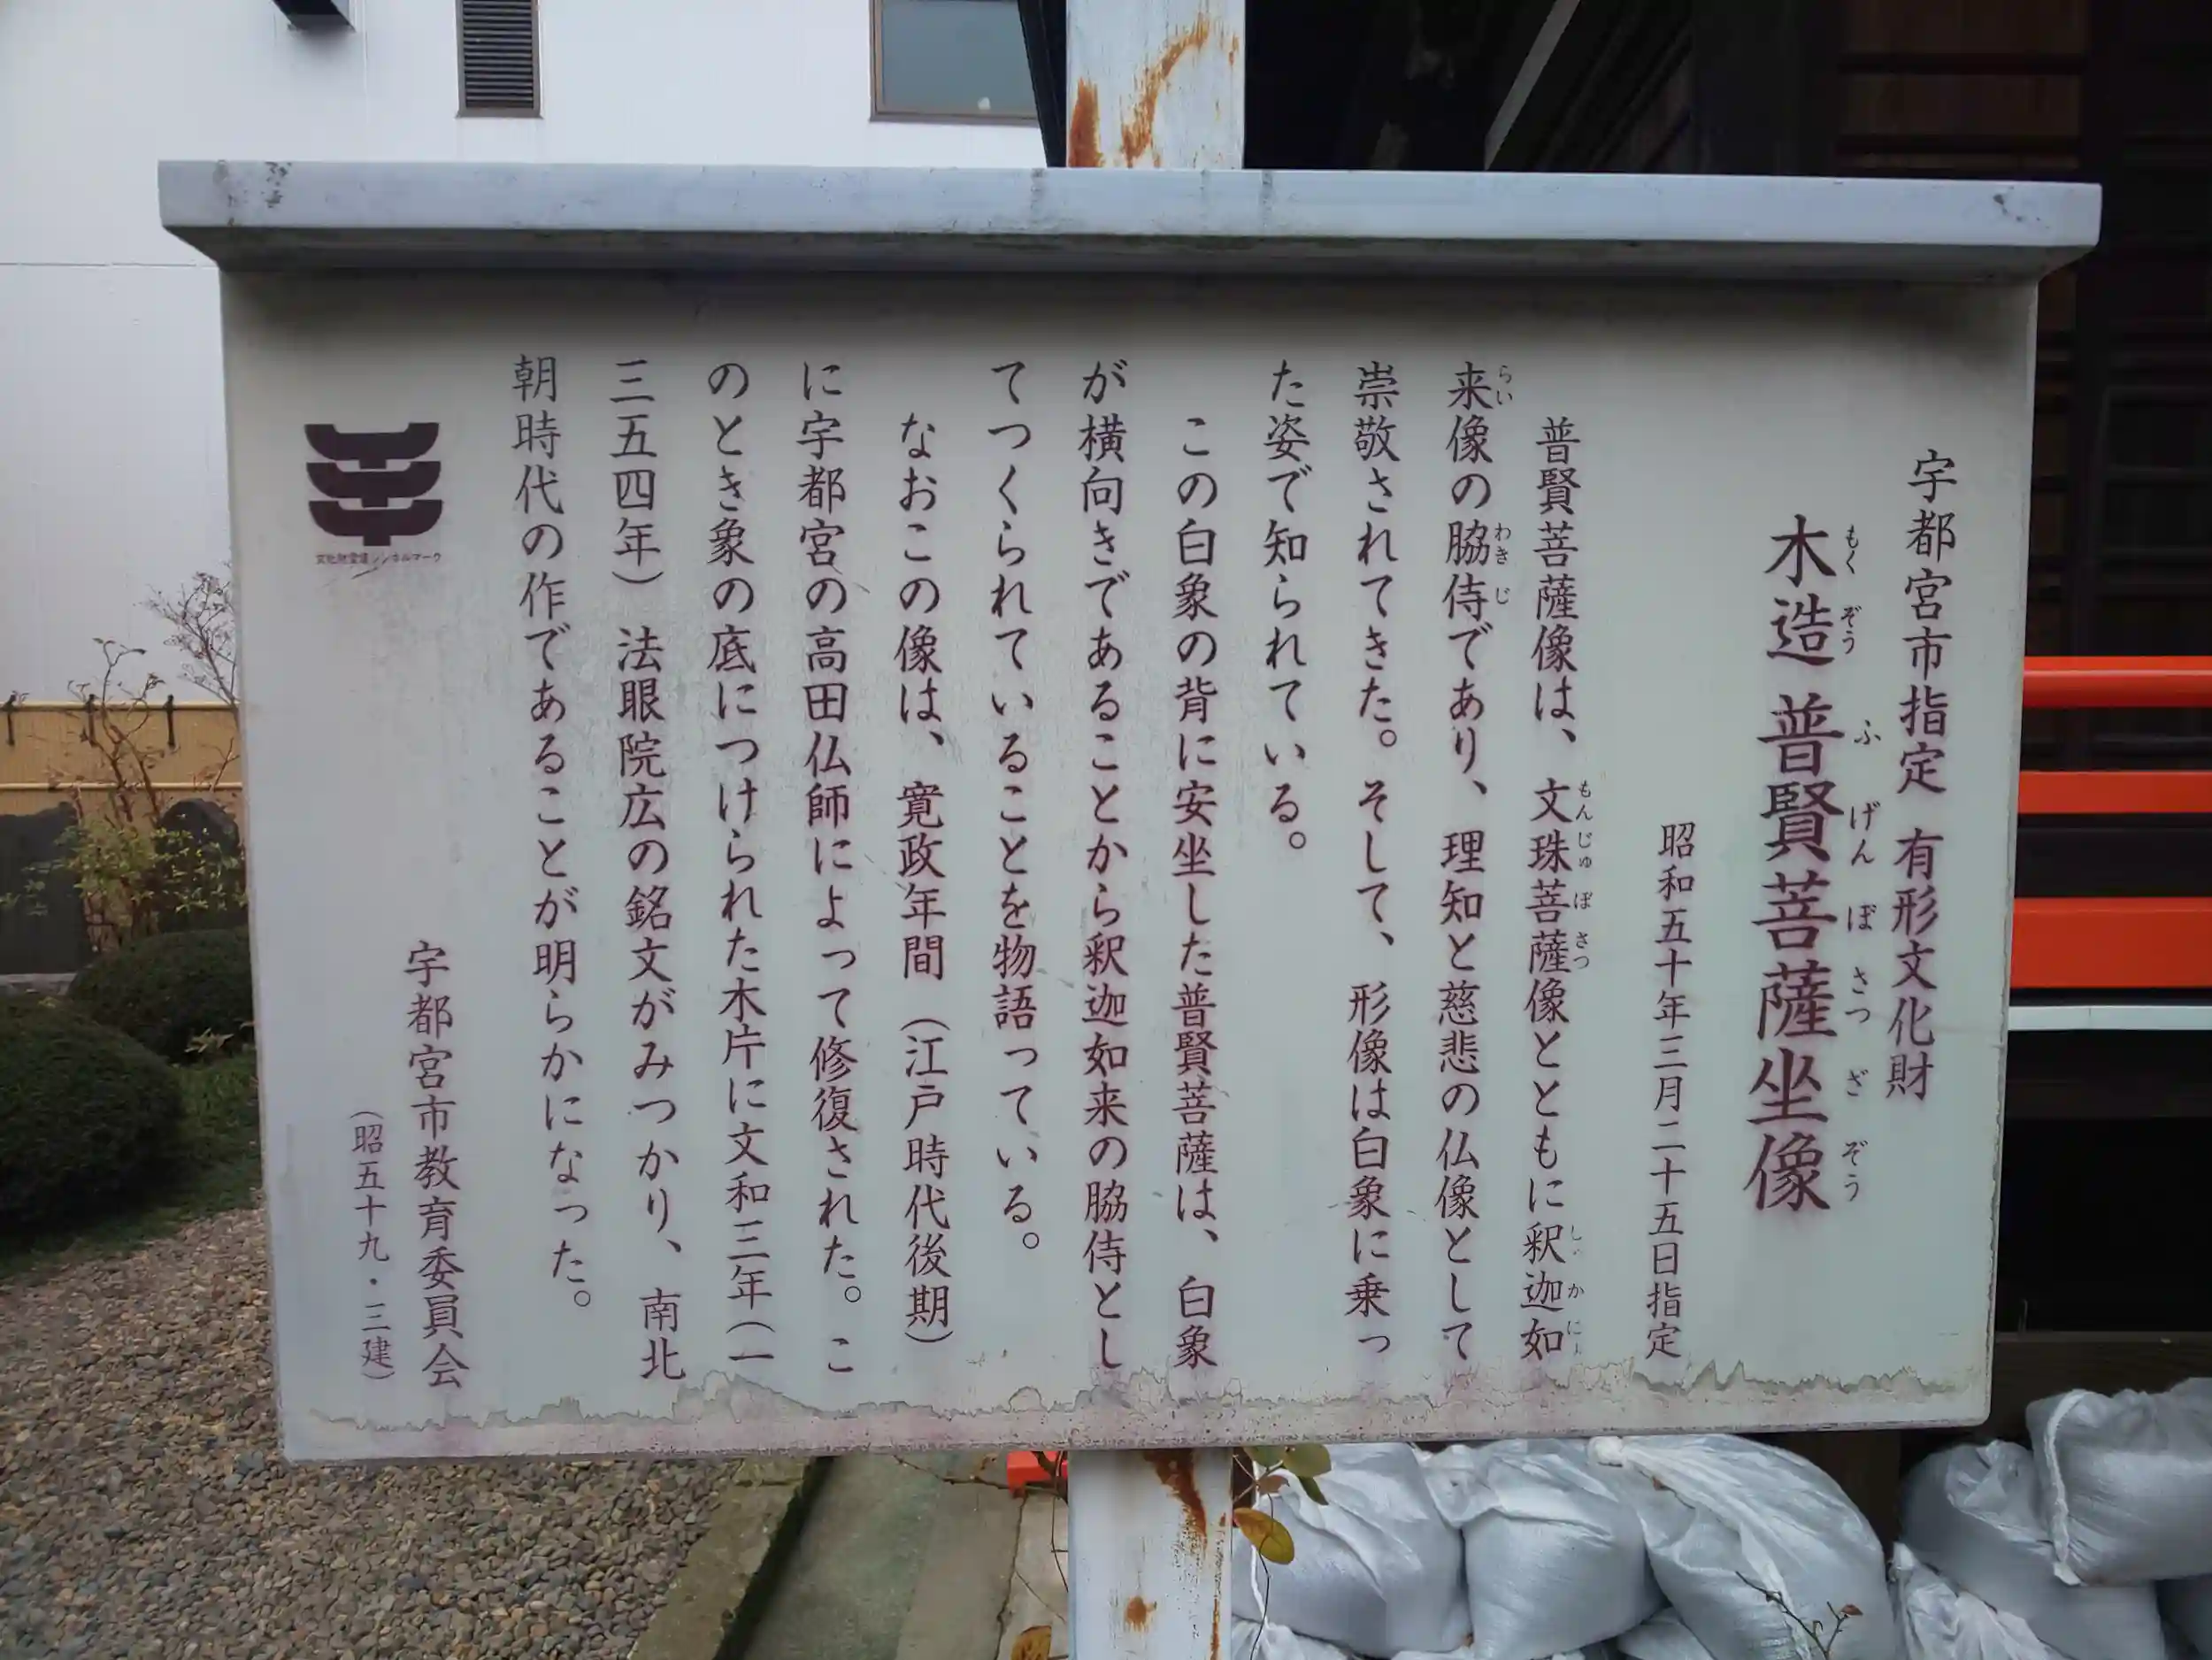 宇都宮市指定 有形文化財
木造普賢菩薩坐像
もくぞう ふげんぼさつざぞう
昭和五十年三月二十五日指定
普賢菩薩像は、文珠菩薩像とともに釈迦如
もんじゅぼさつ しゃかにょ
来像の脇侍であり、理知と慈悲の仏像として
らい わきじ
崇敬されてきた。そして、形像は白象に乗っ
た姿で知られている。
この白象の背に安坐した普賢菩薩は、白象
が横向きであることから釈迦如来の脇侍とし
てつくられていることを物語っている。
なおこの像は、寛政年間（江戸時代後期）
に宇都宮の高田仏師によって修復された。こ
のとき象の底につけられた木片に文和三年（一
三五四年）法眼院広の銘文がみつかり、南北
朝時代の作であることが明らかになった。
宇都宮市教育委員会
（昭五十九・三建）
文化財愛護シンボルマーク